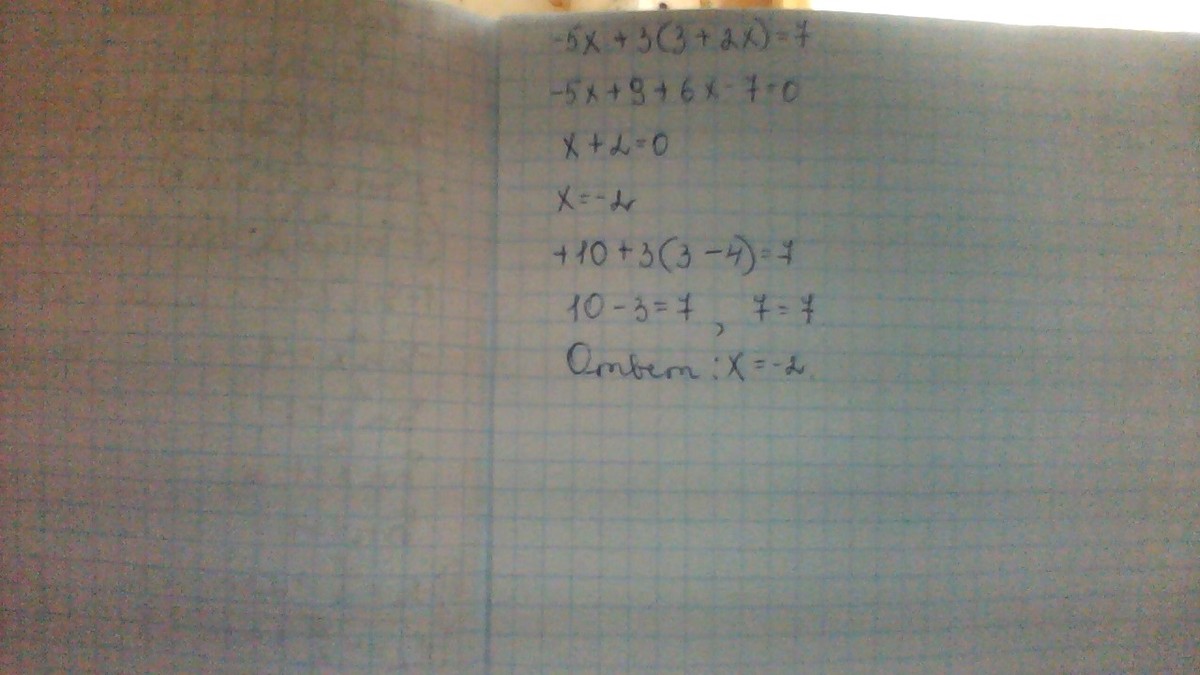 -5x + 3(3 + 2x) = 7
-5x + 9 + 6x - 7 = 0
x + 2 = 0
x = -2
+10 + 3(3 - 4) = 7
10 - 3 = 7 , 7 = 7
Ответ: x = -2